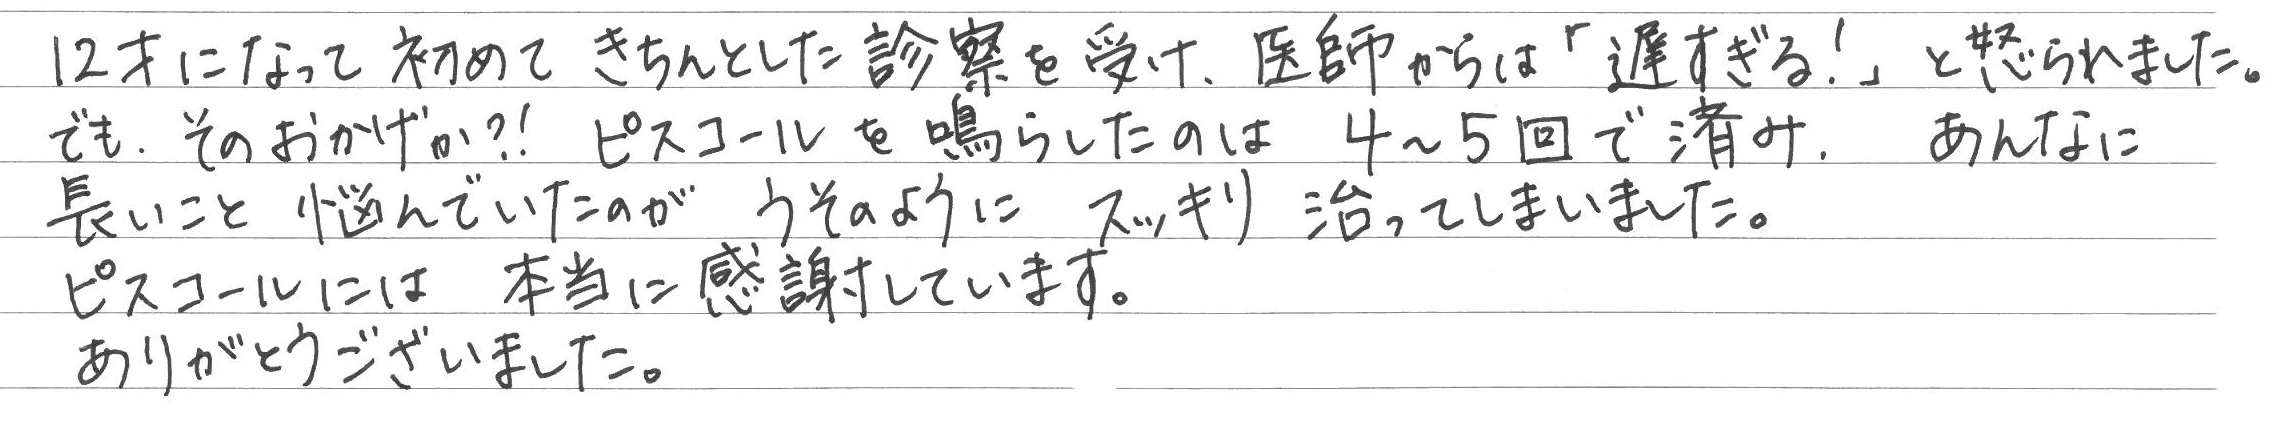 12才になって初めてきちんとした診察を受け、医師からは「遅すぎる!」と怒られました。
でも、そのおかげか?! ピスコールを鳴らしたのは 4~5回で済み、 あんなに
長いこと 悩んでいたのが うそのように スッキリ 治ってしまいました。
ピスコールには 本当に感謝しています。
ありがとうございました。